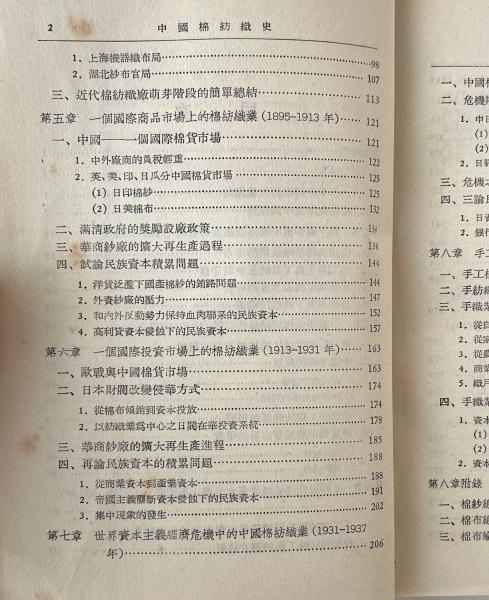 2 中國棉紡織史
1. 上海機器織布局 98
2. 湖北紗布官局 107
三、近代棉紡織廠萌芽階段的簡單總結 113
第五章 一個國際商品市場上的棉紡織業 (1895—1913 年) 121
一、中國——一個國際棉貨市場 122
1. 中外廠商的負稅輕重 122
2. 英、美、印、日瓜分中國棉貨市場 125
(1) 日印棉紗 125
(2) 日美棉布 132
二、滿清政府的獎勵設廠政策 134
三、華商紗廠的擴大再生產過程 138
四、試論民族資本積累問題 144
1. 洋貨泛濫下國產棉紗的銷路問題 144
2. 外資紗廠的壓力 147
3. 和內外反動勢力保持血肉聯系的民族資本 152
4. 高利貸資本侵蝕下的民族資本 157
第六章 一個國際投資市場上的棉紡織業 (1913—1931 年) 163
一、歐戰與中國棉貨市場 163
二、日本財閥改變侵華方式 174
1. 從棉布傾銷到資本投放 174
2. 以紡織業爲中心之日閥在華投資系統 178
三、華商紗廠的擴大再生產進程 185
四、再論民族資本的積累問題 188
1. 從商業資本到產業資本 188
2. 帝國主義壟斷資本侵蝕下的民族資本 191
3. 集中現象的發生 202
第七章 世界資本主義經濟危機中的中國棉紡織業 (1931—1937
年) 206
一、中國棉
二、危機
1. 中
(1)
(2)
2. 日
三、危機之
四、三論民
1. 日
2. 銀行
第八章 手工
一、手工棉
二、手紡織
三、手織業
1. 從自
2. 從家
3. 從農
4. 商業
5. 織戶
四、手織業
1. 資本
(1)
(2)
2. 資本
第八章附錄
一、棉紗線
二、棉布輸
三、棉布輸